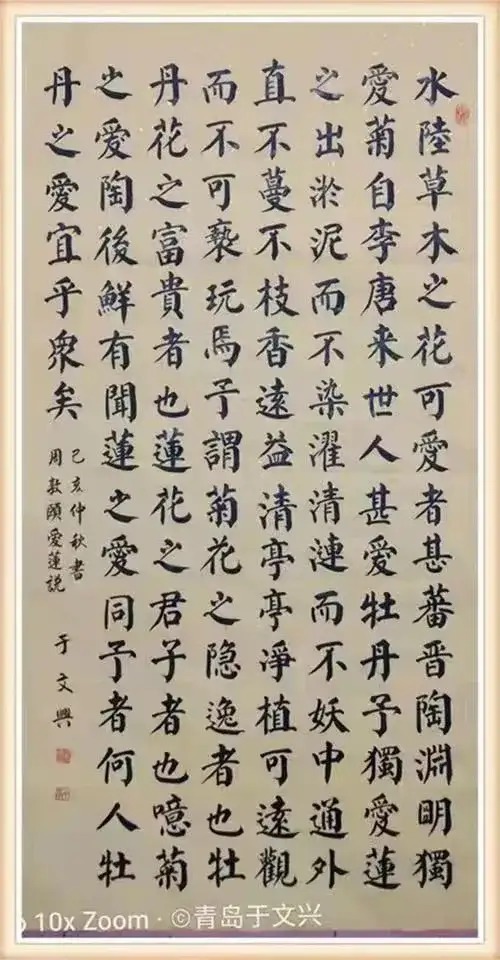 水陸草木之花可愛者甚蕃晋陶淵明獨
愛菊自李唐来世人甚愛牡丹予獨愛蓮
之出淤泥而不染濯清漣而不妖中通外
直不蔓不枝香遠益清亭亭净植可遠觀
而不可褻玩焉予謂菊花之隐逸者也牡
丹花之富貴者也蓮花之君子者也噫菊
之愛陶後鮮有聞蓮之愛同予者何人牡
丹之愛宜乎衆矣
己亥仲秋書
周敦頤愛蓮説
于文興
10x Zoom · ©青岛于文兴